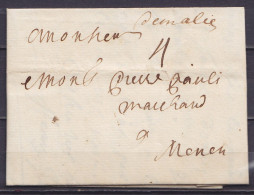 de malin
A Monsieur
4
Monsr pierre pauli
marchand
a
Menen